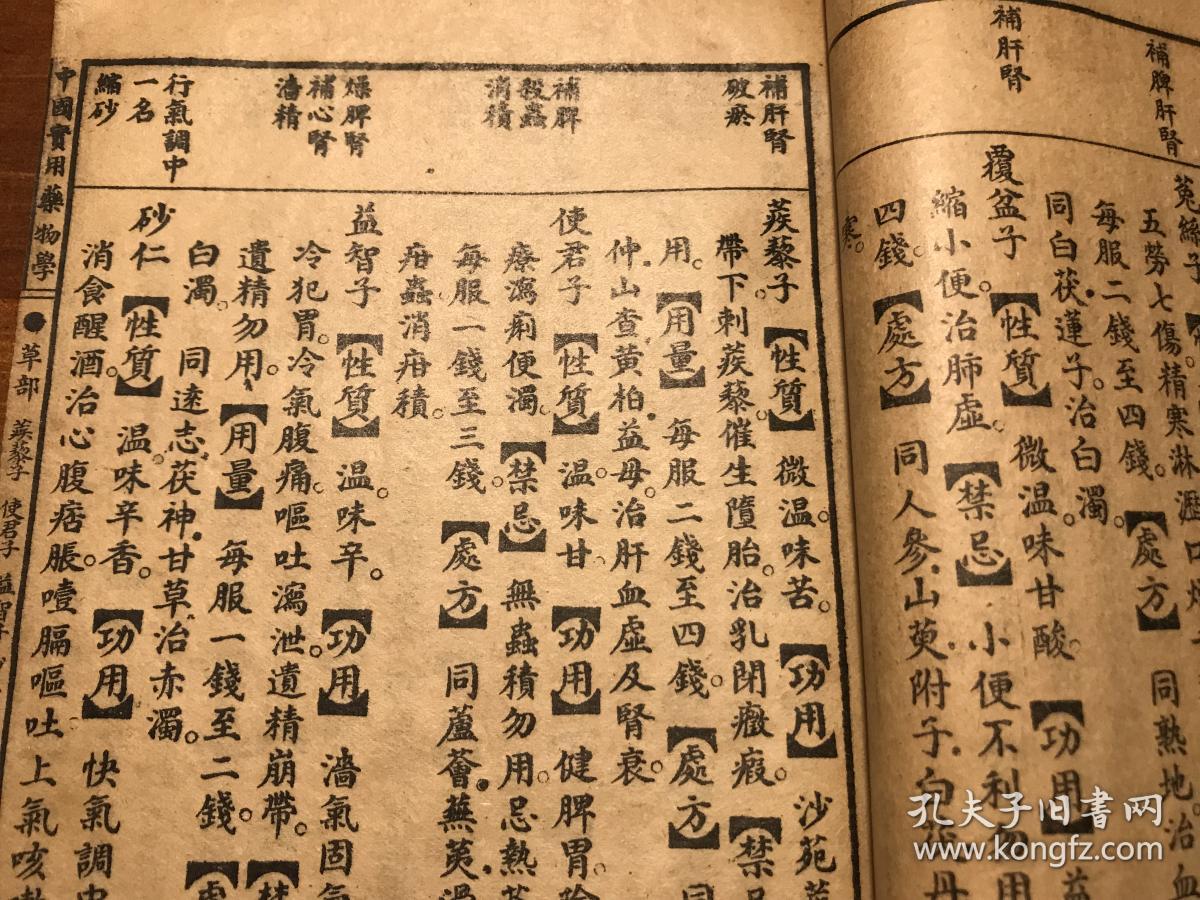 補脾肝腎
補肝腎
五勞七傷精寒淋瀝口
每服二錢至四錢。【處方】同熟地治血
同白茯蓮子。治白濁。
覆盆子【性質】微温。味甘酸。【功用】益
縮小便。治肺虛。【禁忌】小便不利勿用
四錢。【處方】同人參山萸附子
寒。
補肝腎
破瘀
補脾
殺蟲
消積
燥脾腎
補心腎
濇精
行氣調中
一名
縮砂
蒺藜子【性質】微温。味苦。【功用】沙苑
帶下。刺蒺藜。催生墮胎。治乳閉癥瘕。【禁
用。【用量】每服二錢至四錢。【處方】同
仲山查黃柏益母。治肝血虛及腎衰。
使君子【性質】温。味甘。【功用】健脾胃
療瀉痢便濁。【禁忌】無蟲積勿用。忌熱
每服一錢至三錢。【處方】同蘆薈蕪荑
疳蟲消疳積。
益智子【性質】温。味辛。【功用】濇氣固
冷犯胃。冷氣腹痛。嘔吐瀉泄。遺精崩帶。【禁
遺精勿用。【用量】每服一錢至二錢。【處
白濁。同逺志茯神甘草治赤濁。
砂仁【性質】温。味辛香。【功用】快氣調中
消食醒酒。治心腹痞脹。噎膈嘔吐上氣咳
中國實用藥物學●草部 蒺藜子 使君子 益智子
孔夫子旧书网
www.kongfz.com